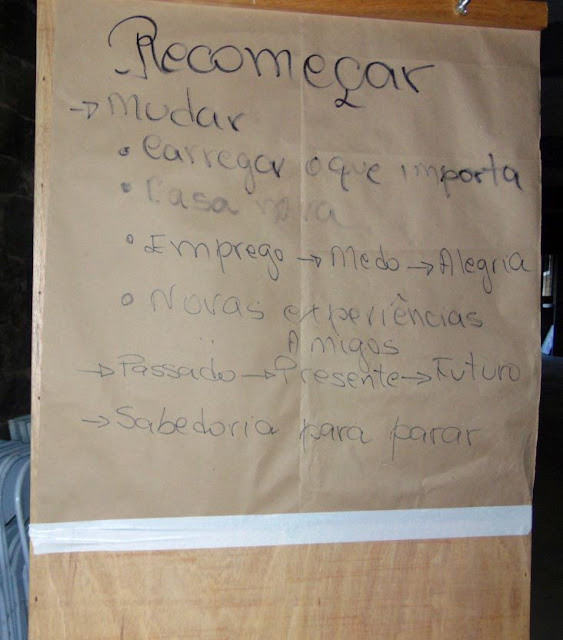 Recomeçar
→ Mudar
• Carregar o que importa
• Casa nova
• Emprego → Medo → Alegria
• Novas experiências
" Amigos
→ Passado → Presente → Futuro
→ Sabedoria para parar